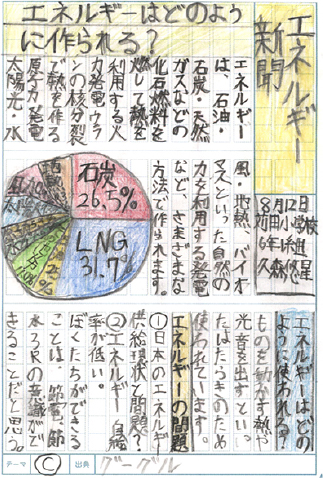 エネルギー
新聞
8月12日
小学校
6年
エネルギーはどのよう
に作られる?
エネルギー
は、石油・
石炭・天然
ガスなどの
化石燃料を
燃して熱を
利用する火
力発電、ウラ
ンの核分裂
で熱を作る
原子力発電
太陽光・水
風・地熱、バイオ
マスといった自然の
力を利用する発電
など、さまざまな
方法で作られます。
石炭
26.5%
LNG
31.7%
エネルギーはどの
ように使われる?
ものを動かす熱や
光音を出すとい
たはたらきのため
使われています。
エネルギーの問題
①日本のエネルギ
供給現状と問題?
②エネルギー自給
率が低い。
ぼくたちができる
ことは、節電、節
水、3Rの意識がで
きることだと思う。
テーマ
C
出典
グーグル